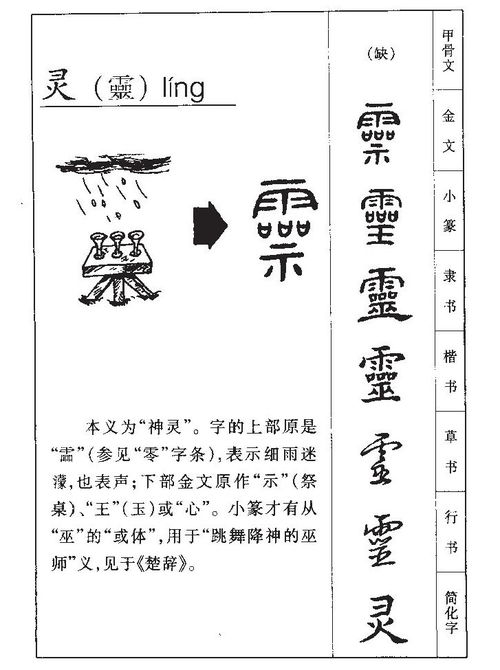 灵（靈）líng
本义为“神灵”。字的上部原是
“霝”（参见“零”字条），表示细雨迷
濛，也表声；下部金文原作“示”（祭
桌）、“王”（玉）或“心”。小篆才有从
“巫”的“或体”，用于“跳舞降神的巫
师”义，见于《楚辞》。
（缺） 甲骨文
金文
小篆
靈 隶书
靈 楷书
草书
行书
灵 简化字